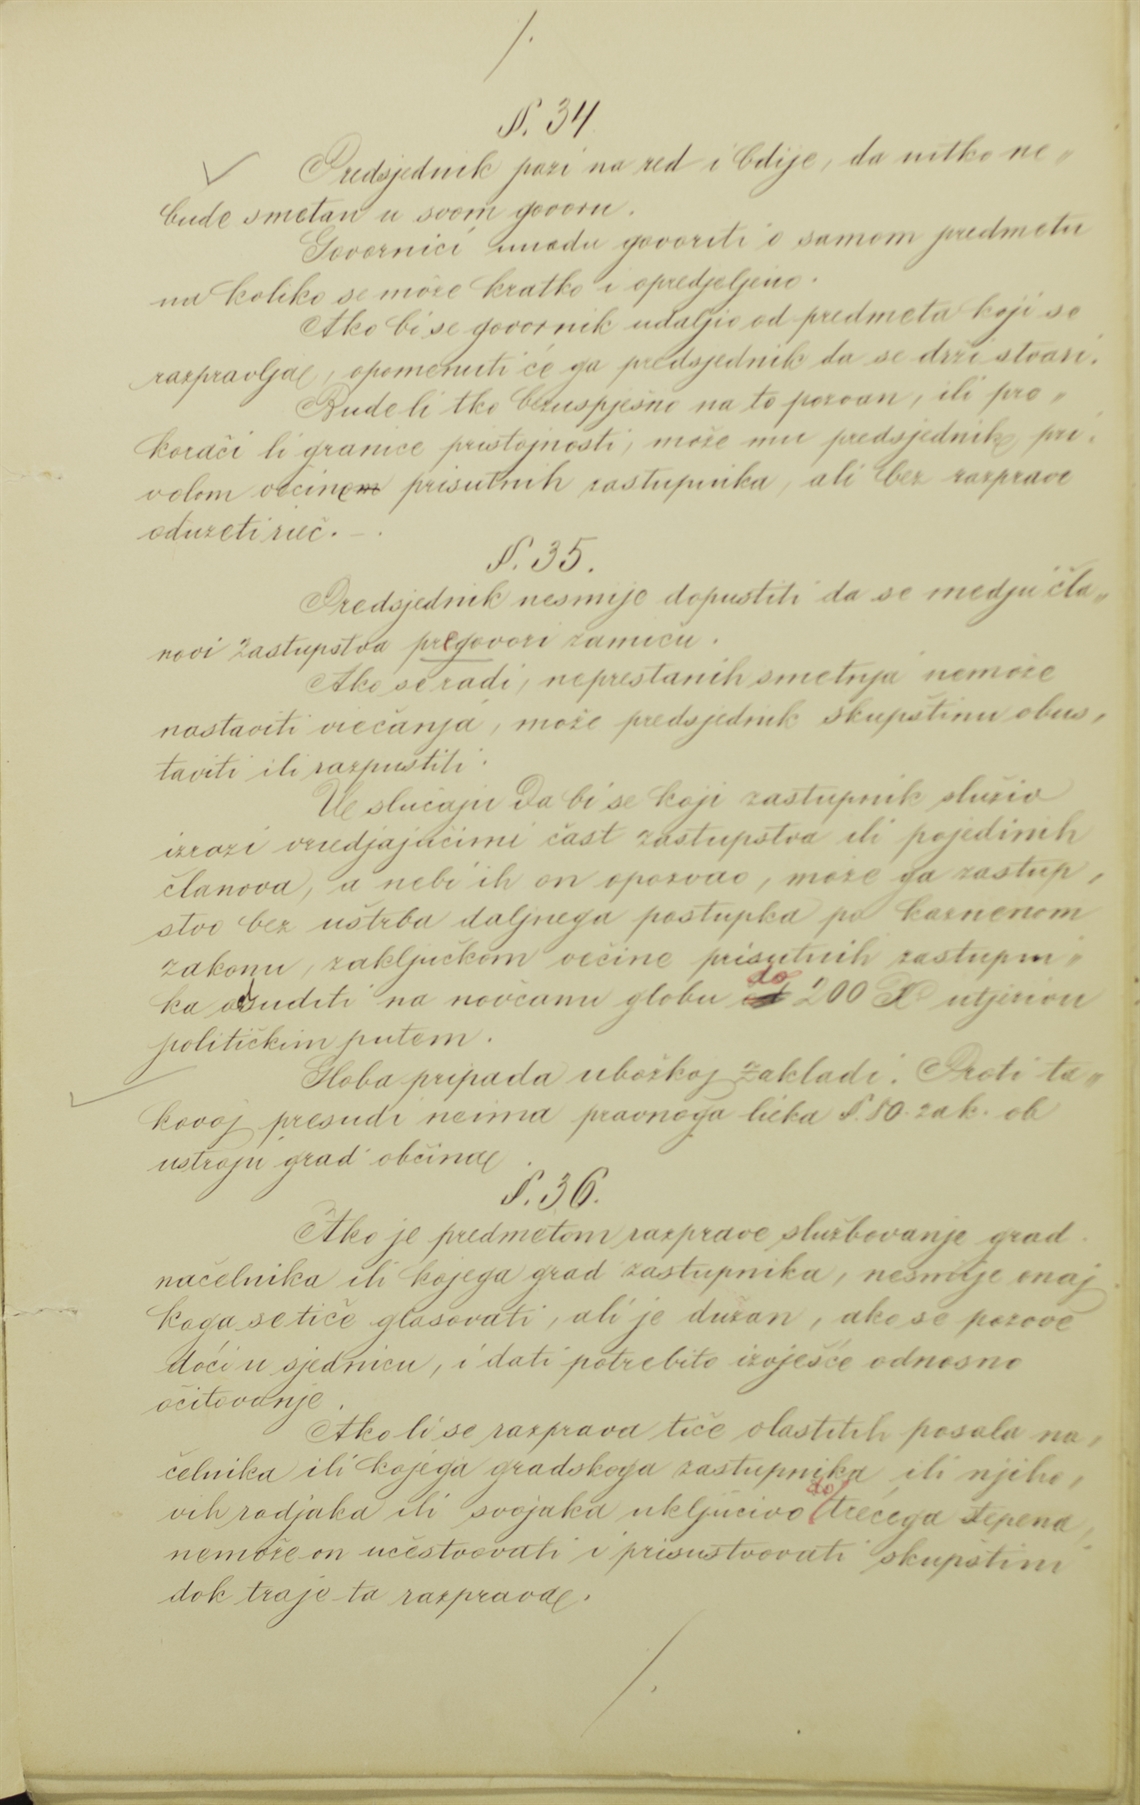 /.
§. 34
Predsjednik pazi na red i bdije, da nitko ne„
bude smetan u svom govoru.
Govornici imadu govoriti o samom predmetu
na koliko se može kratko i opredjeljeno.
Ako bi se govornik udaljio od predmeta koji se
razpravlja, opomenuti će ga predsjednik da se drži stvari.
Bude li tko bezuspješno na to pozvan, ili pro„
korači li granice pristojnosti, može mu predsjednik pri„
volom većine prisutnih zastupnika, ali bez razprave
oduzeti rieč. –.
§. 35.
Predsjednik nesmije dopustiti da se medju čla„
novi zastupstva pregovori zamiču.
Ako se radi, neprestanih smetnja nemože
nastaviti viećanja, može predsjednik skupštinu obus„
taviti ili razpustiti.
U slučaju da bi se koji zastupnik služio
izrazi vriedjajućimi čast zastupstva ili pojedinih
članova, a nebi ih on opozvao, može ga zastup„
stvo bez uštrba daljnega postupka po kaznenom
zakonu, zaključkom većine prisutnih zastupni„
ka odsuditi na novčanu globu do 200 K utjerivu
političkim putem.
Globa pripada ubožkoj zakladi. Proti ta„
kovoj presudi neima pravnoga lieka §. 50. zak. ob
ustroju grad občina
§. 36.
Ako je predmetom razprave službovanje grad.
načelnika ili kojega grad zastupnika, nesmije onaj
koga se tiče glasovati, ali je dužan, ako se pozove
doći u sjednicu, i dati potrebito izvješće odnosno
očitovanje.
Ako li se razprava tiče vlastitih posala na„
čelnika ili kojega gradskoga zastupnika ili njiho„
vih rodjaka ili svojaka uključivo do trećega stepena,
nemože on učestvovati i prisustvovati skupštini
dok traje ta razprava.
/.